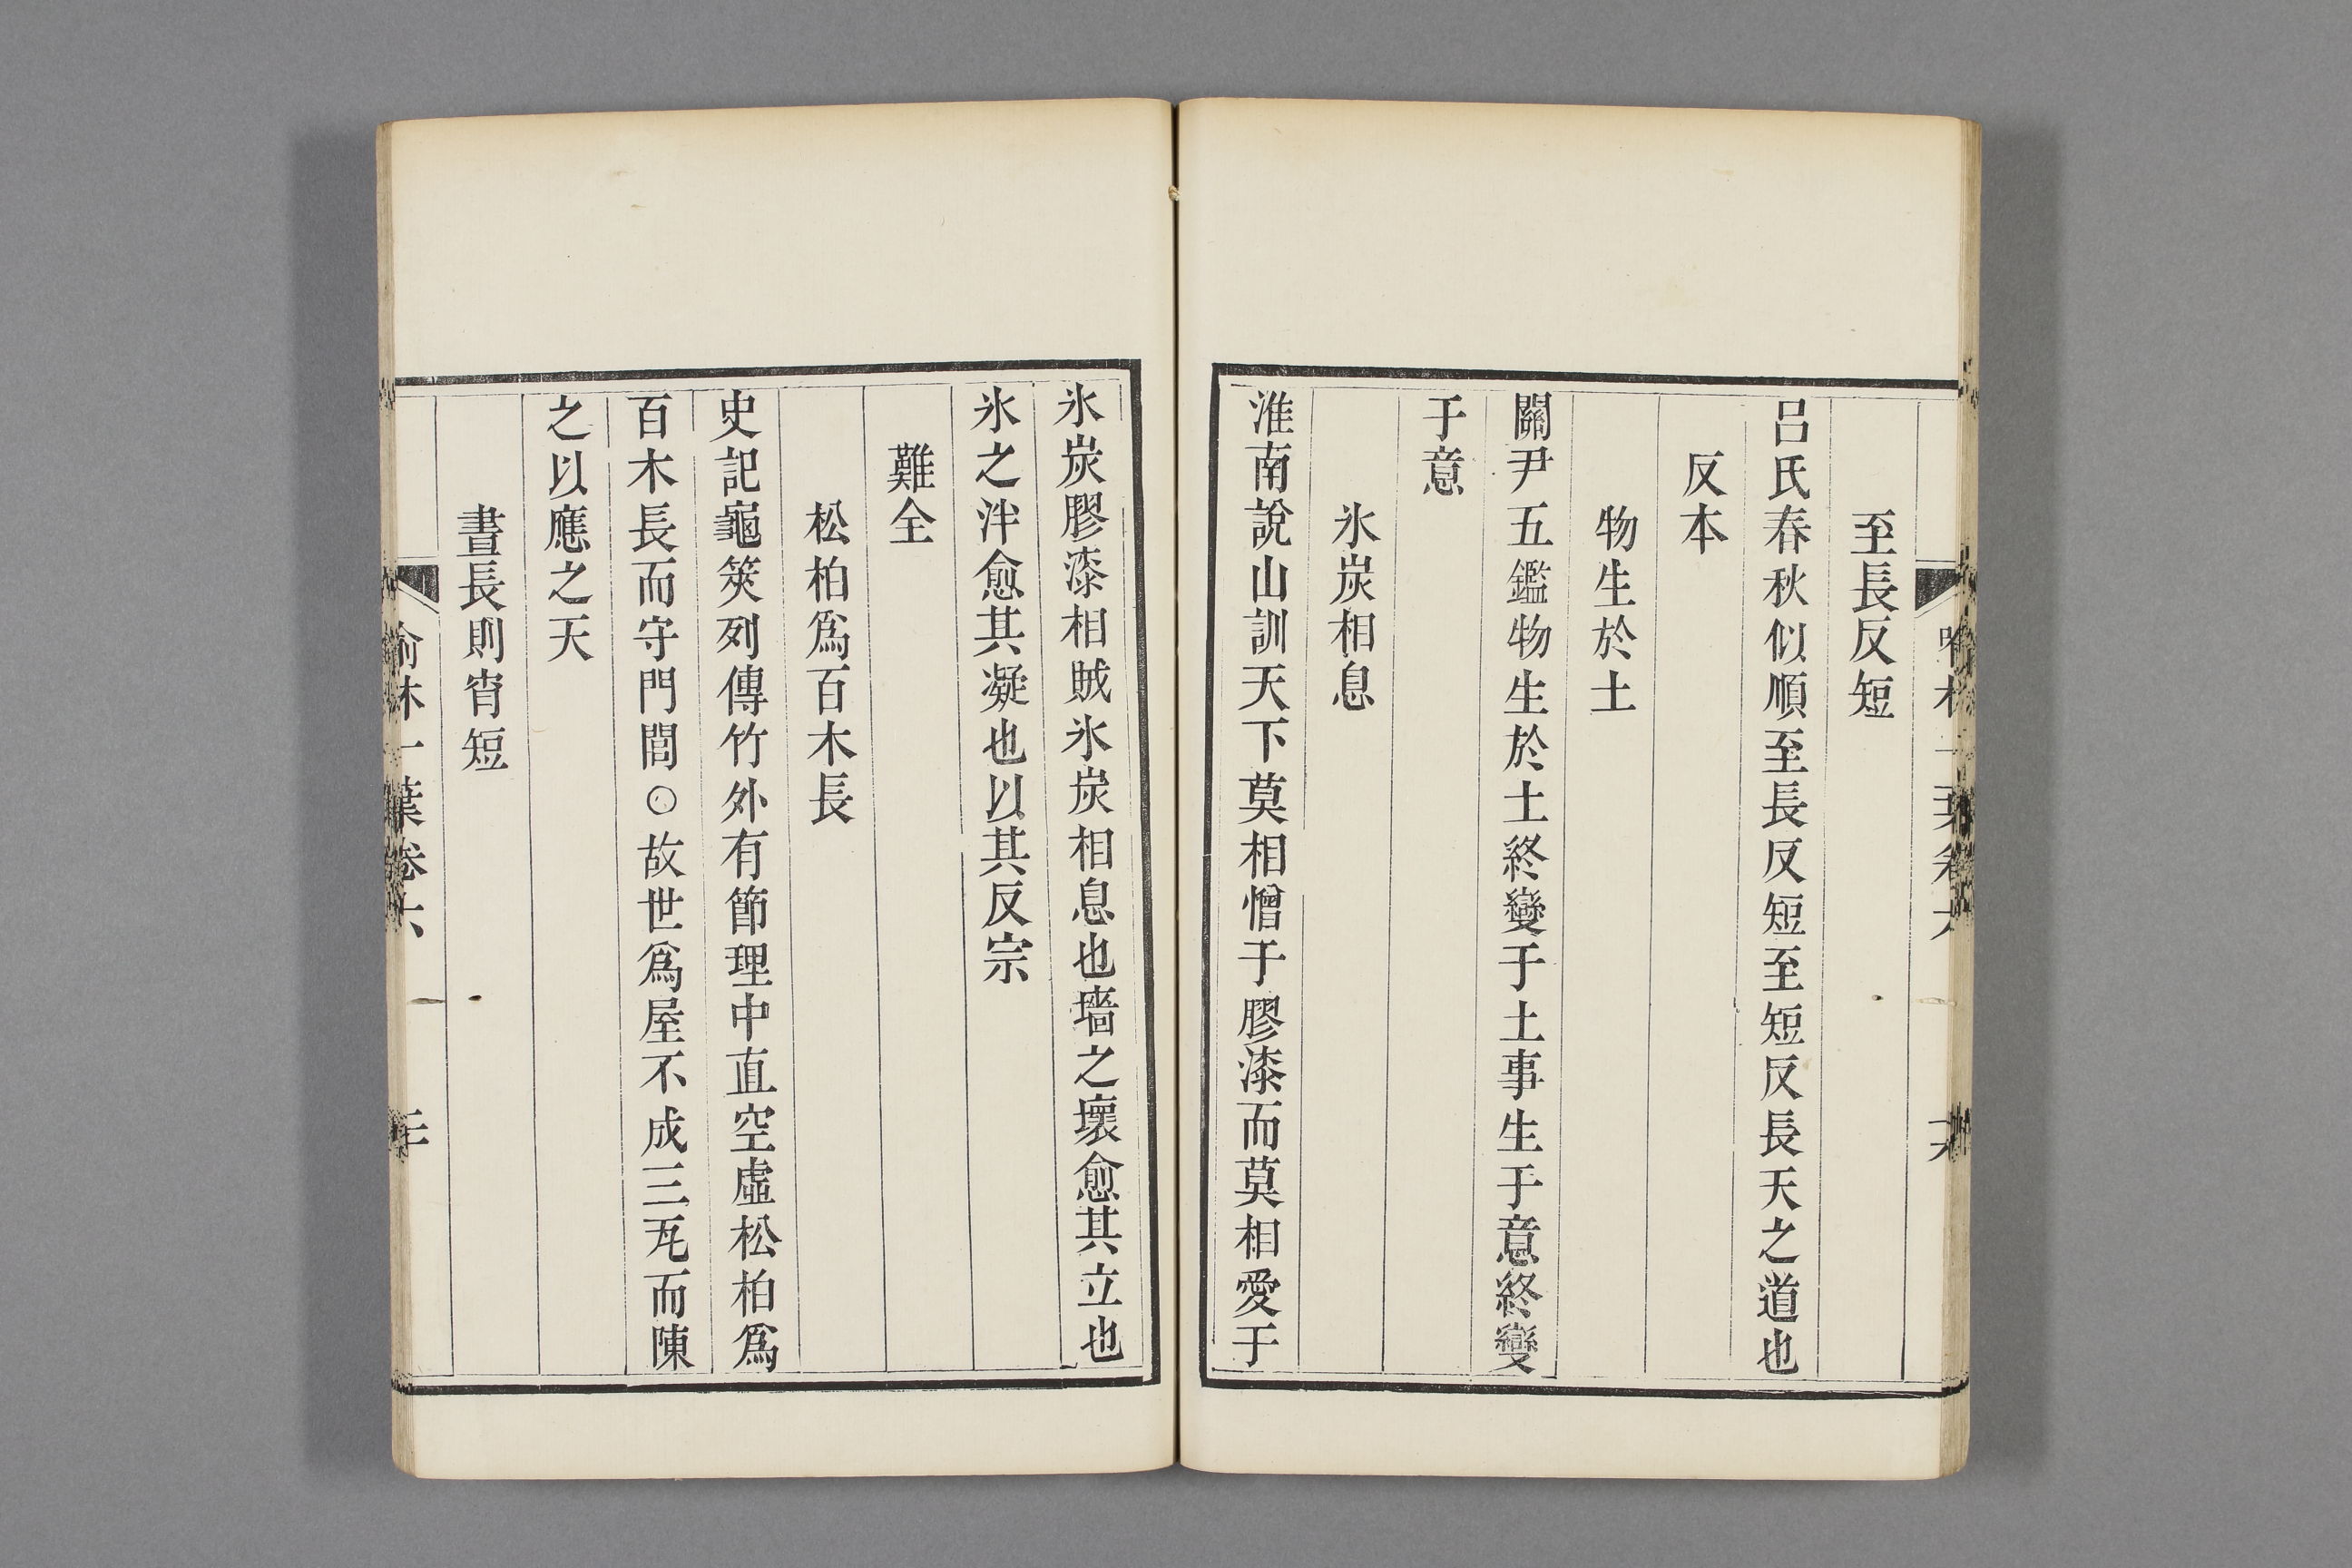 至長反短
呂氏春秋似順至長反短至短反長天之道也
反本
物生於土
關尹五鑑物生於土終變于土事生于意終變
于意
氷炭相息
淮南說山訓天下莫相憎于膠漆而莫相愛于
氷炭膠漆相賊氷炭相息也墻之壞愈其立也
氷之泮愈其凝也以其反宗
難全
松柏爲百木長
史記龜筴列傳竹外有節理中直空虛松柏爲
百木長而守門閭○故世爲屋不成三瓦而陳
之以應之天
晝長則宵短
林一葉卷六